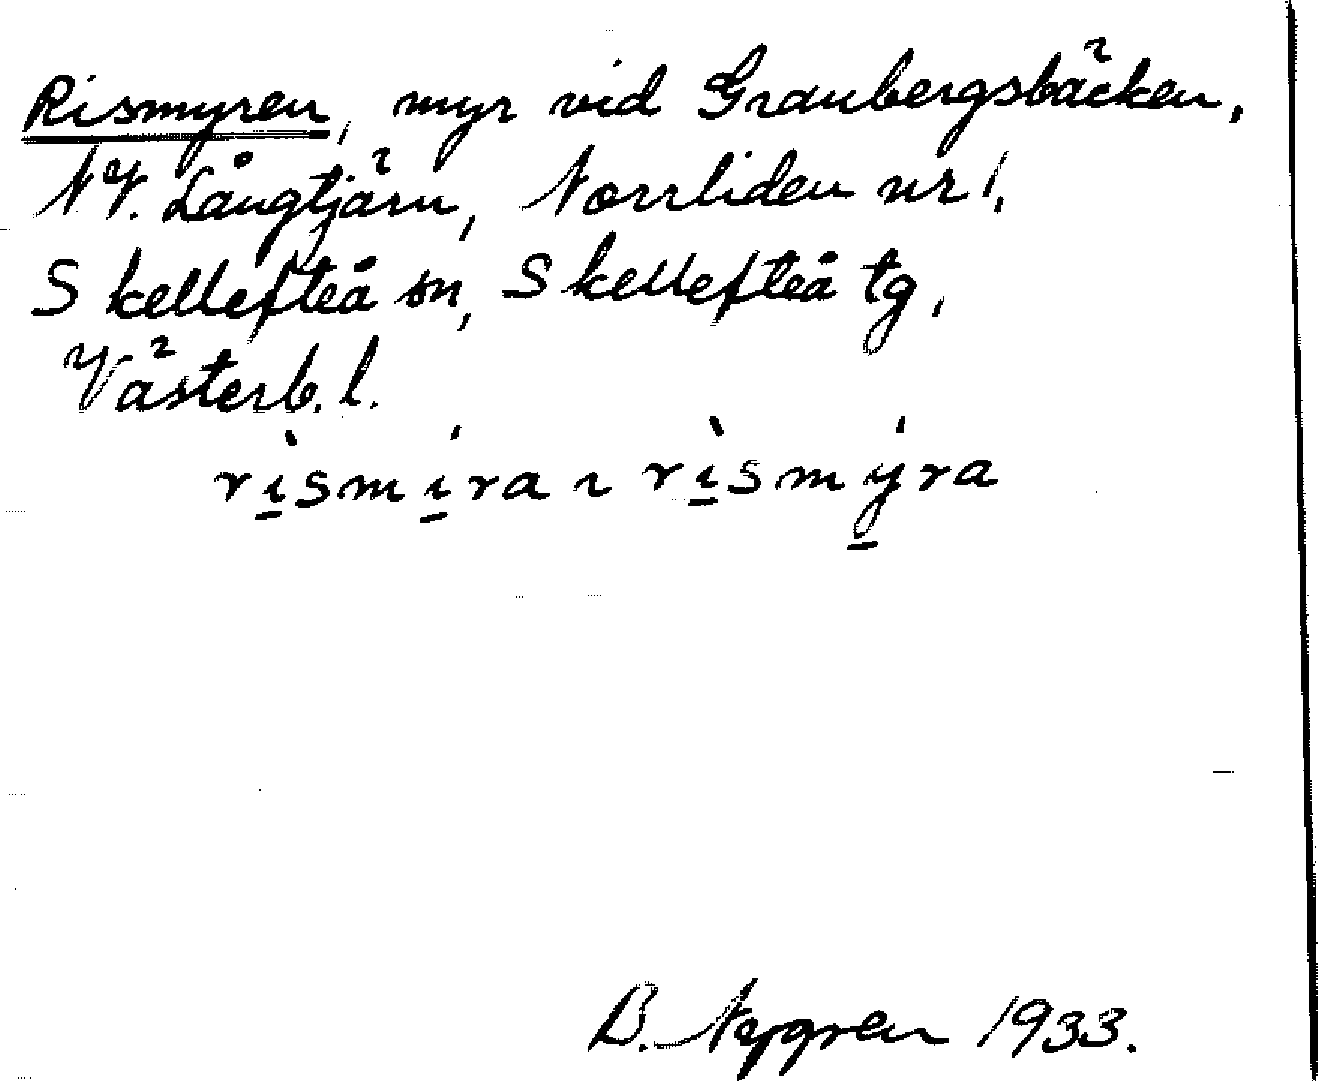 Rismyren, myr vid Granbergsbäcken,
NV. Långtjärn, Norrliden nr 1,
Skellefteå sn, Skellefteå tg,
Västerb. l.
rı̲̀smı̲́ra ~ rı̲̀smý̲ra
B. Nygren 1933.